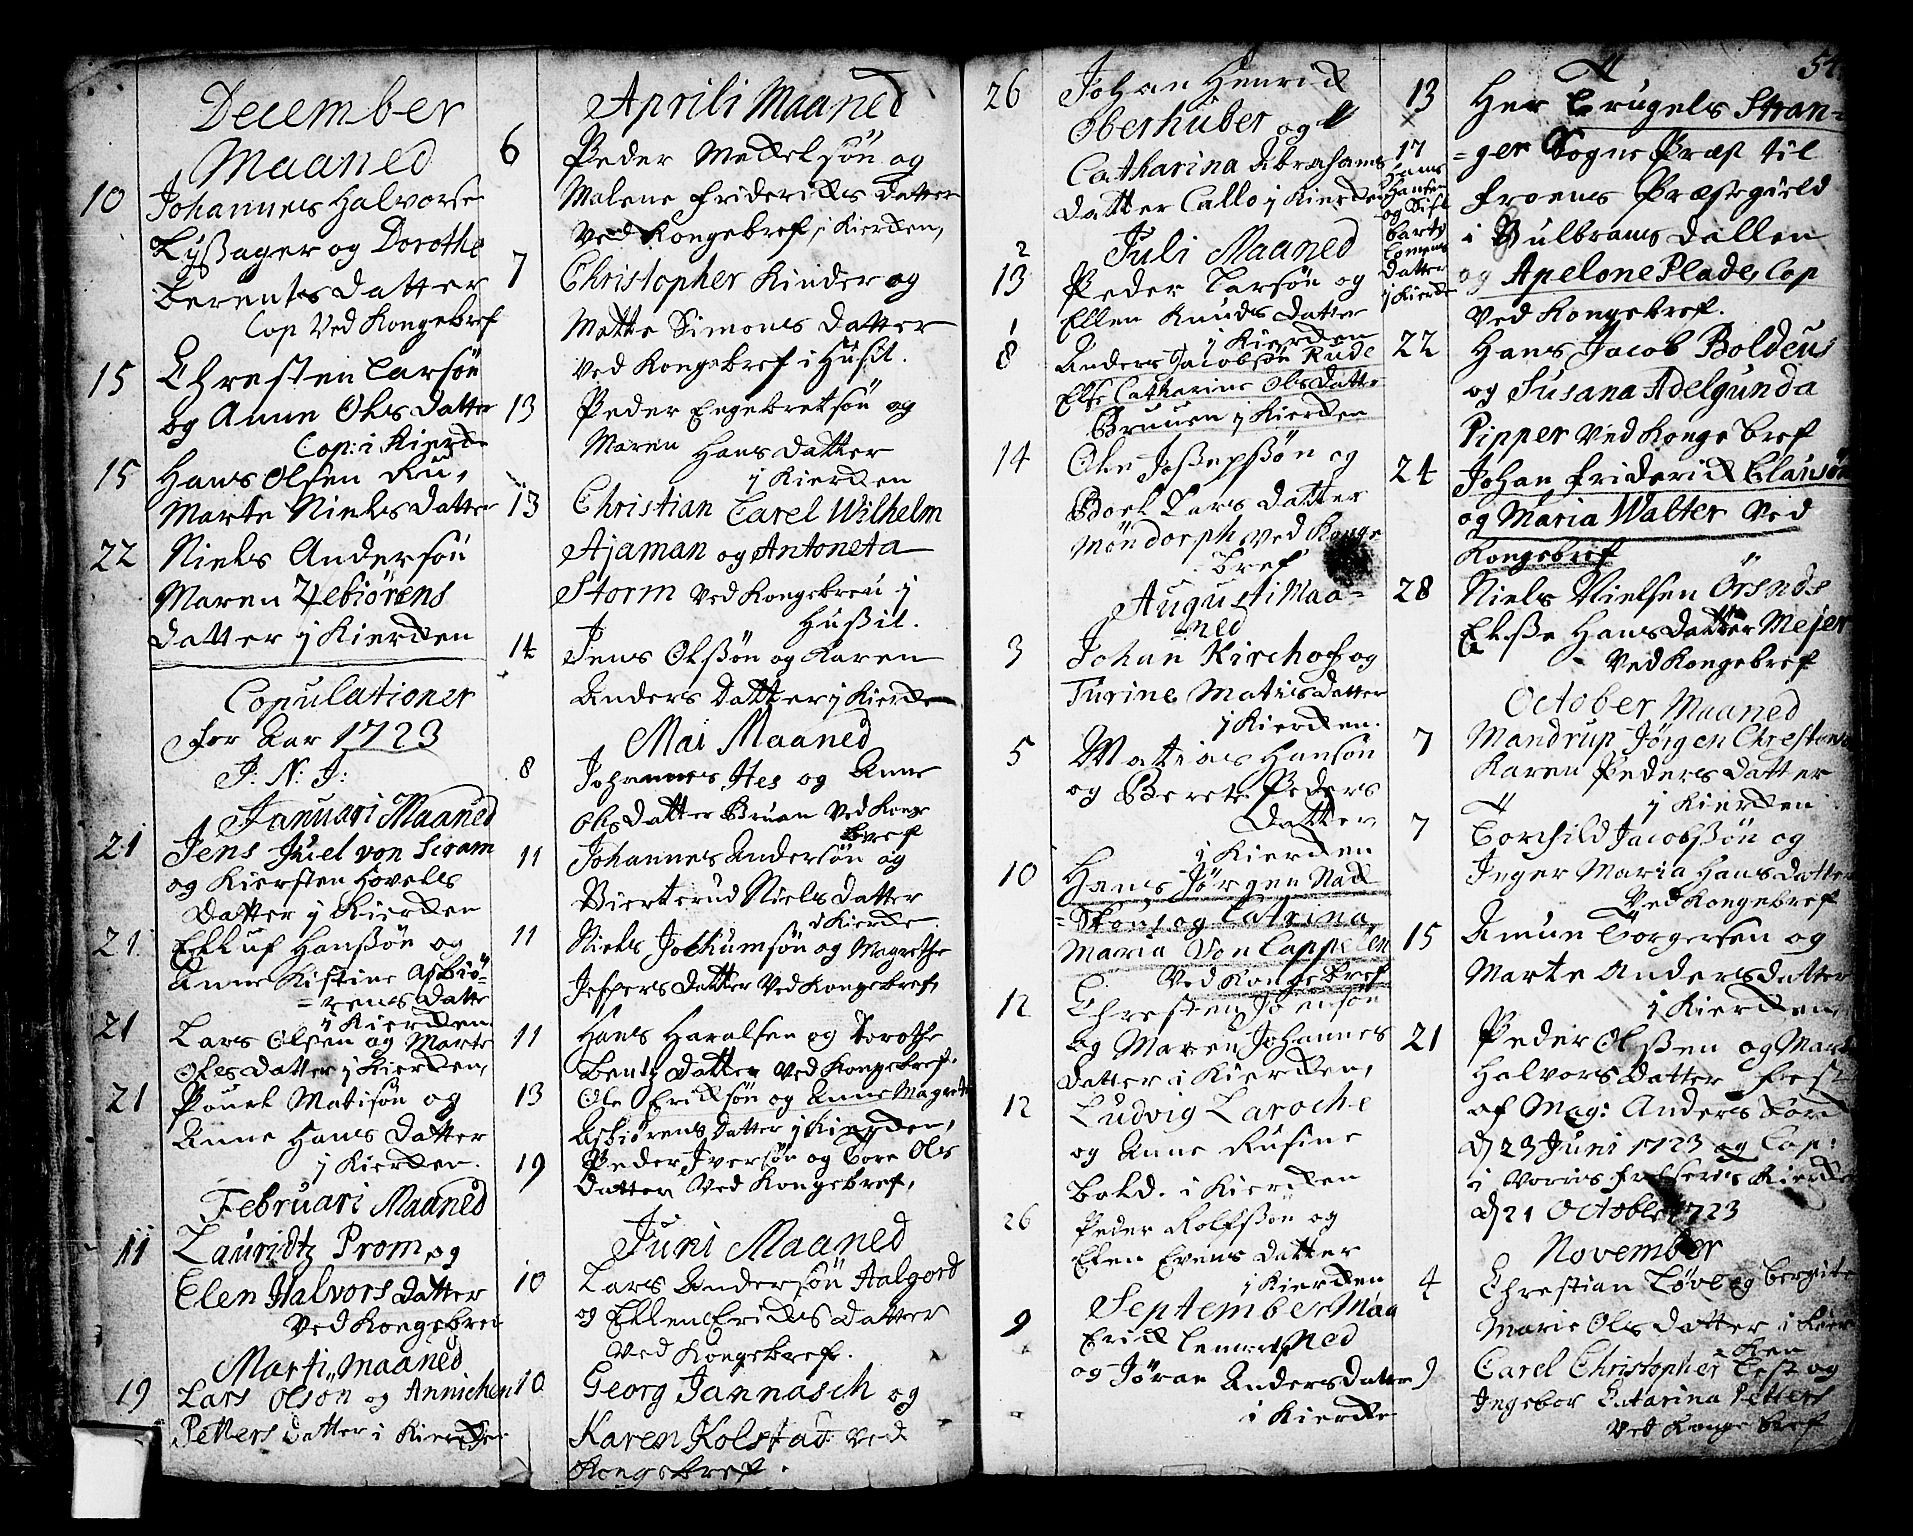 December
Maaned
10 Johannes Halvorse
Lyssager og Dorothe
Berents datter
Cop Ved Kongebref
15 Chresten Larsön
og Anne Ols datter
Cop: i Kierk
15 Hans Olsen Ru,
Marte Niels datter
22 Niels Andersön
Maren Tebiörens
datter j Kierken
Copulationer
for Aar 1723
J: N: J:
Januari Maaned
21 Jens Juel von
og Kiersten Hovels
datter j Kierken
21 Elluf Hanssön og
Anne Kistine Asbiö-
=rens datte
j Kierken
21 Lars Olsen og Marte
Oles datter j Kierken,
21 Pouel Matisön og
Anne Hans datter
j Kierken.
Februari Maaned
11 Lauridtz Prom og
Elen Halvors datter
Ved Kongebref
Marti, maaned
19 Lars Olson og Annichen
Petters datter i Kierken
Aprili Maaned
6 Peder Mekelsön og
Malene Friderichs datter
Ved Kongebref, i Kierken,
7 Christopher Kinder og
Mette Simons datter
Ved Kongebref i Husit.
13 Peder Engebretsön og
Maren Hans datter
j Kierken
13 Christian Carel Wilhelm
Ajaman og Antoneta
Storm Ved Kongebreu j
Hussit.
14 Jens Olssön og Karen
Anders datter j Kierke
Mai Maaned
8 Johannes Hes og Anne
Ols datter Bruun Ved Konge
bref
11 Johannes Andersön og
Niels datter
i Kierke
11 Niels Jochumsön og Magrethe
Jespers datter Ved Kongebref,
11 Hans Haralsen og Dorothe
Bentz datter Ved Kongebref.
13 Ole Ericksön og Anne Magrete
Asbiörens datter j Kierken,
19 Peder Iversön og Tore Ols
datter Ved Kongebref,
Juni Maaned
10 Lars Andersön Aalgord
og Ellen Ericks datter
Ved Kongebref.
10 Georg Jannasch og
Karen Kolstad Ved
Kongebref.
26 Johan Henrick
Oberhuber og
Catharina Abrahams
datter Callo j Kierken
Juli Maaned
2
13 Peder Larsön og
Ellen Knuds datter
j Kierken
8 Anders Jacobsen Rude
Else Catharine Ols datte
Bruuen j Kierken
14 Ole Jossepssön og
Boel Lars datter
Möndorph Ved Konge-
bref
Augusti Maa-
ned
3 Johan Kirchof og
Turine Matis datter
j Kierken.
5 Matias Hansön
og Berete Peders
datter
j Kierken
10 Hans Jörgen Nack
=Skou og Catrina
Maria Von Cappelen
Ved Kongebref
12 Chresten Joensön
og Maren Johannes
datter i Kierken,
12 Ludvig Laroche
og Anne Rusine
Bold. i Kierken
26 Peder Rolfssön og
Elen Evens datter
i Kierken
September Maa
ned
9 Erick Lenertz
og Jöran Anders datter
i Kierke
54.
13 Her Trugels Stran=
=ger Sogne Præst til
Froens Præstegield
i Gulbrans dallen
og Apelone Plade, Cop
Ved Kongebref.
17 Hans
Hansen
og
datter
j Kierke
22 Hans Jacob Boldeus
og Susana Adelgunda
Pipper Ved Konge bref
24 Johan Friderick Clausön
og Maria Walter Ved
Kongebrif
28 Niels Nielsen Örsnds
Elsse Hans datter Mejer
Ved Kongebref
October Maaned
7 Mandrup Jörgen Chrestensen
Karen Peders datter
j Kierken
7 Torchild Jacobssön og
Inger Maria Hans datter
Ved Kongebref
15 Amun Torgersen og
Marte Anders datter
j Kierken,
21 Peder Olssen og Marte
Halvors datter fest
af Mag: Anders Tord
d 23 Juni 1723 og Cop:
i Vorris frelseris Kierke
d 21 October 1723
November
4 Chrestian Löve og Bergite
Marie Ols datter i Kier
ken
9 Carel Christopher Test og
Ingebor Katarina Petters
Ved Konge bref